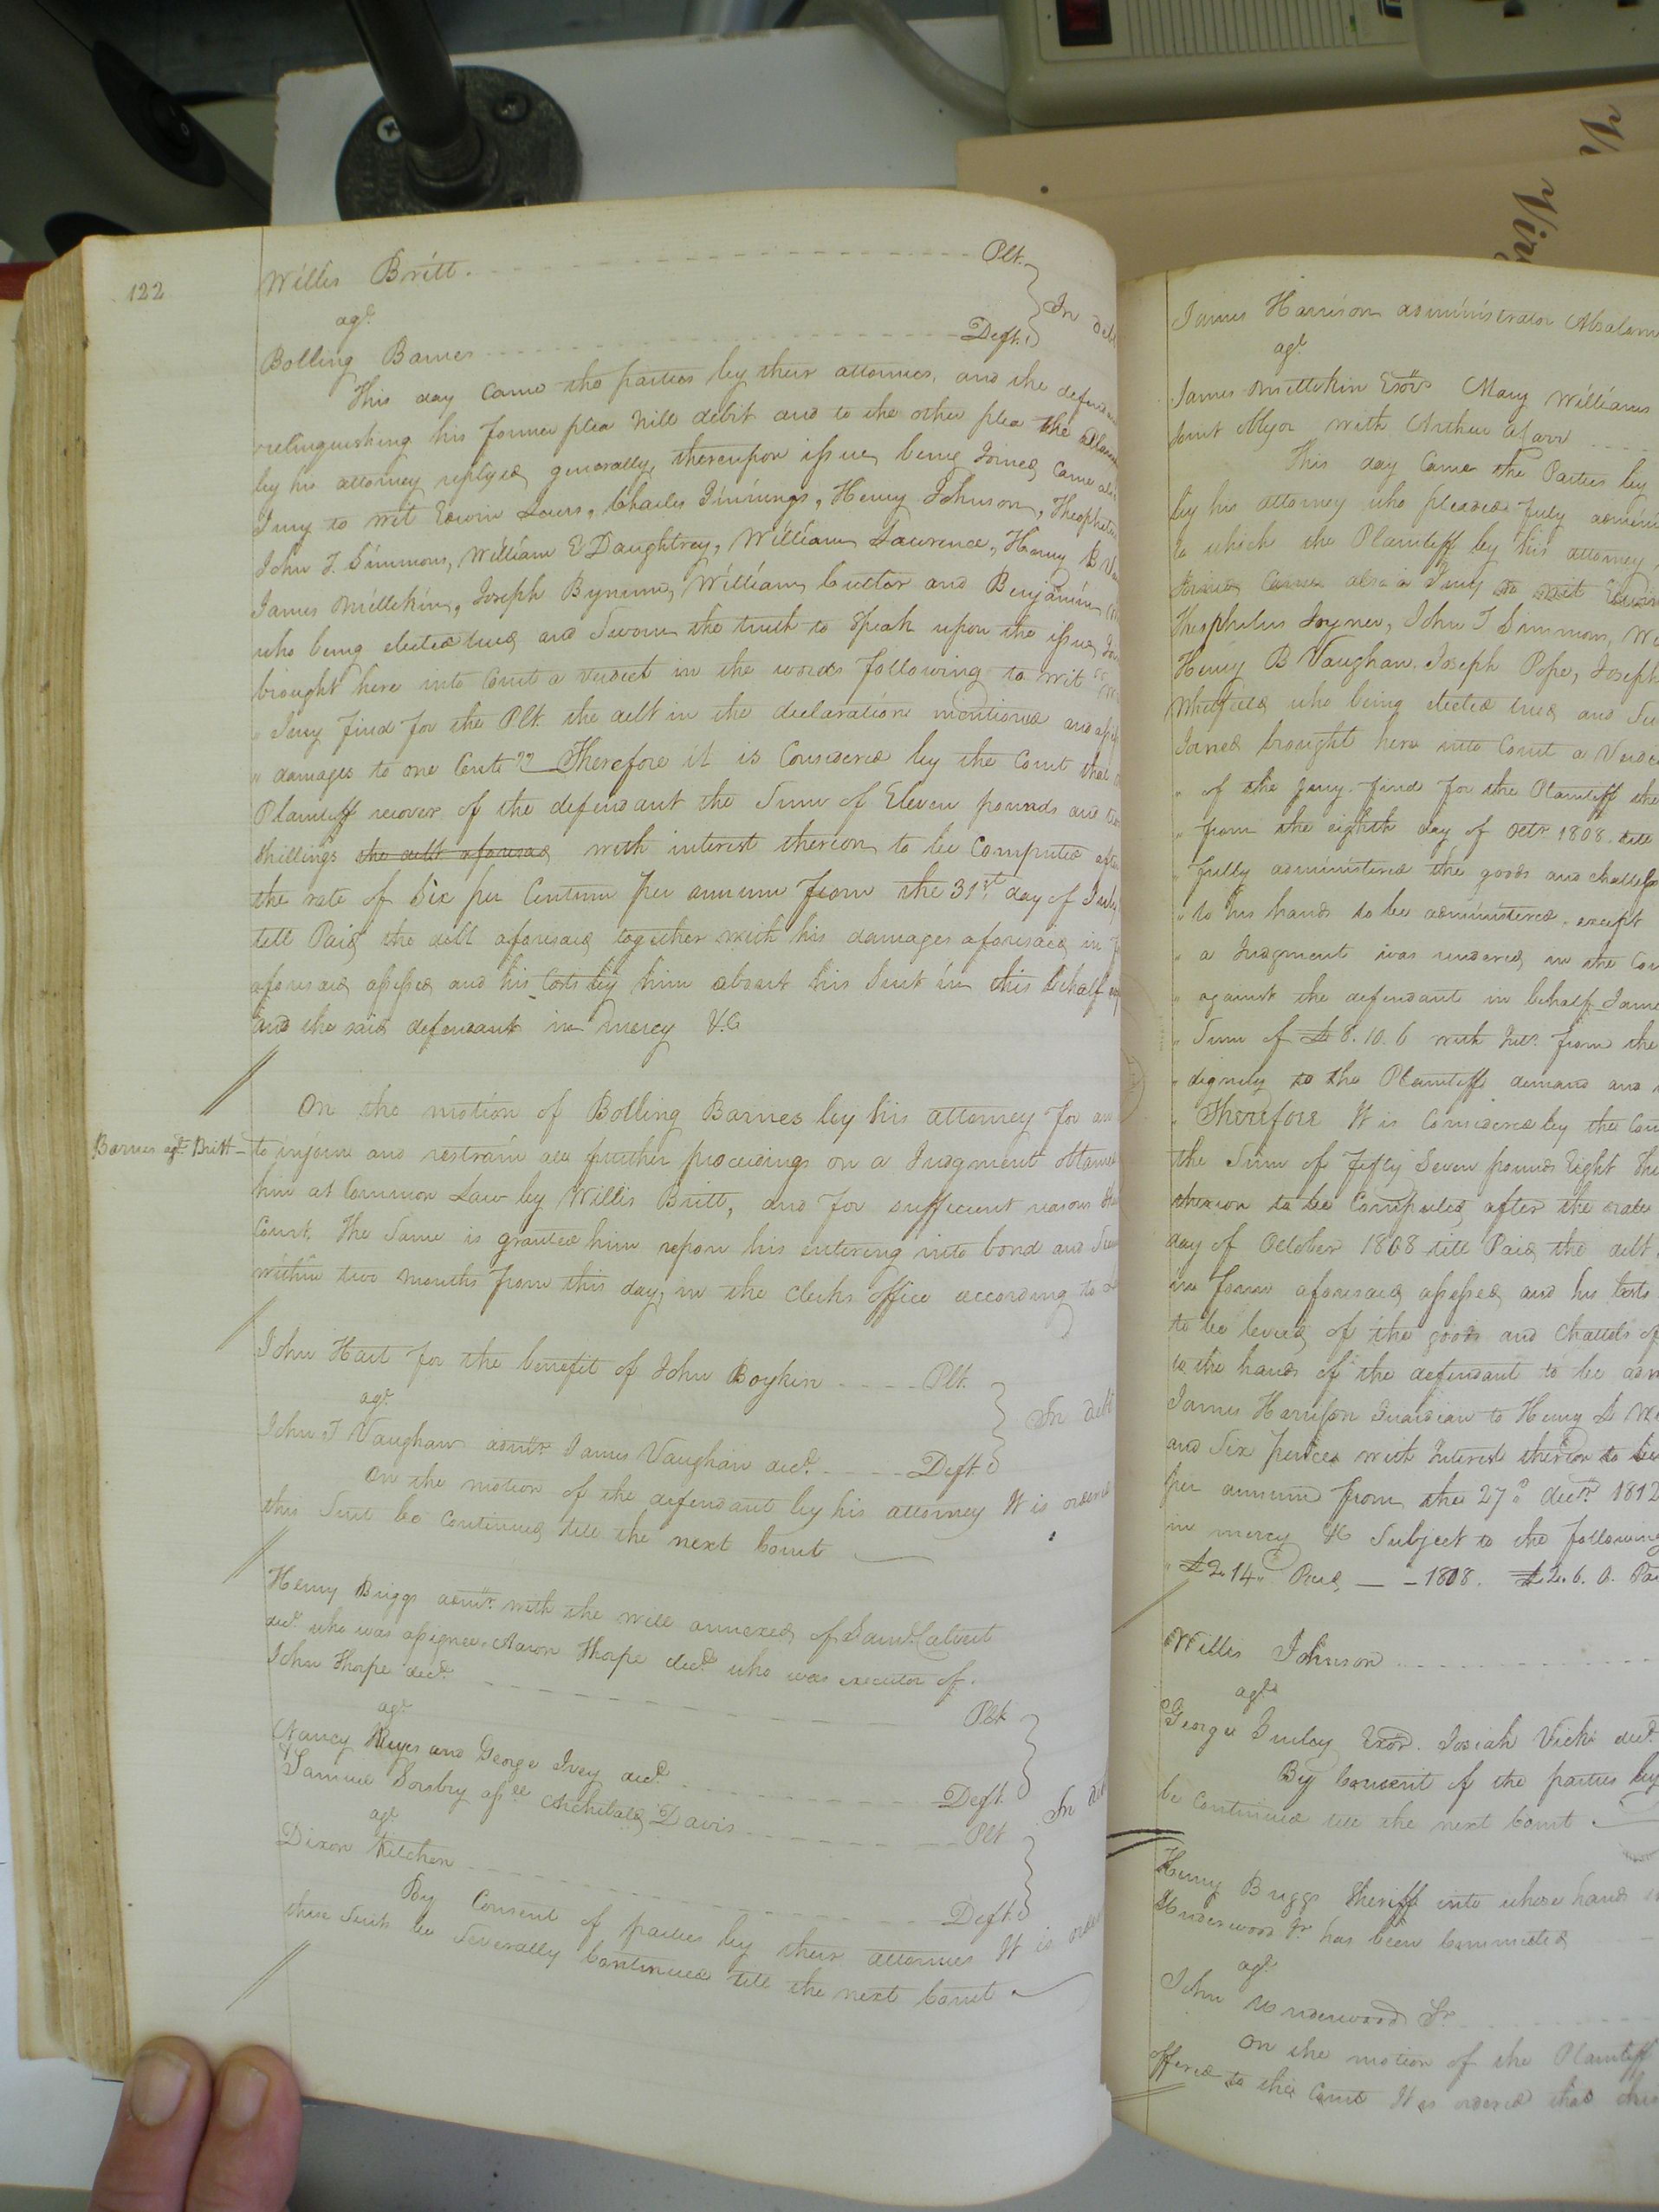 122
Willis Britt. Plt.
agt.
Bolling Barnes Deft. In debt
This day came the parties by their attornies, and the
relinquishing his former plea Nill debit and to the other plea the
by his attorney replyed generally, thereupon issue being Joined came
Jury to wit Edwin Laws, Charles Jinnings, Henry Johnson,
John T. Simmons, William E Daughtrey, William Lawrence, Henry B
James Millekin, Joseph Bynum, William Cutler and Benjamin
who being elected tried and Sworn the truth to Speak upon the issue
brought here into Court a verdict in the words following to wit
" Jury find for the Plt. the debt in the declaration mentioned and
" damages to one Cent" Therefore it is Considered by the Court that
Plaintiff recover of the defendant the Sum of Eleven pounds and
Shillings the debt aforesaid with interest thereon to be Computed after
the rate of Six per Centum per annum from the 31st day of
till Paid the debt aforesaid together with his damages aforesaid in
aforesaid assessed and his Costs by him about his Suit in this behalf
and the said defendant in mercy &C
On the motion of Bolling Barnes by his attorney for an
Barnes agt. Britt to injoin and restrain all further proceedings on a Judgment
him at Common Law by Willis Britt, and for sufficient reasons
Court. The Same is granted him upon his entering into bond and
within two months from this day, in the clerks office according to
John Hart for the benefit of John Boykin Plt.
agt.
John T Vaughan admr. James Vaughan decd. Deft. In debt
On the motion of the defendant by his attorney It is
this Suit be Continued till the next Court
Henry Briggs admr. with the will annexed of Saml. Calvert
decd. who was assignee Aaron Thorpe decd. who was executor of
John Thorpe decd. Plt
agt.
Nancy and George Ivey decd. Deft. In
Samuel Sorsby assee Archibald Davis Plt
agt
Dixon Kitchen Deft.
By Consent of parties by their attornies It is
these Suits be Severally Continued till the next Court
James Harrison administrator Absalom
agt
James Millikin Exor Mary Williams
Joint Major with Arthur
This day Came the Parties by
by his attorney who pleaded fully
to which the Plaintiff by his attorney,
Joined Came also a Jury to wit
Theophilus Joyner, John T Simmons,
Henry B Vaughan, Joseph Pope, Joseph
Whitfield who being elected tried and
Joined brought here into Court a
" of the Jury find for the Plaintiff the
" from the eighth day of Octr. 1808 till
" fully administered the goods and
" to his hands to be administered, except
" a Judgment was rendered in the
" against the defendant in behalf
" Sum of £8.10.6 with Intt. from the
" dignity to the Plaintiffs demand and
" Therefore It is Considered by the
the Sum of Fifty Seven pounds Eight
thereon to be Computed after the rate
day of October 1808 till Paid the debt
in form aforesaid assessed and his Costs
to be levied of the goods and Chattels of
in the hands of the defendant to be
James Harrison Guardian to Henry
and Six pences with Interest thereon to be
per annum from the 27th decr. 1812
in mercy &C Subject to the following
" £2.14 Paid — 1808. £2.6.0.
Willis Johnson
agt
George Gurley Exor. Josiah Vick decd.
By Consent of the parties by
be Continued till the next Court
Henry Briggs Sheriff into whose hands
Underwood Jr. has been Committed
agt.
John Underwood Sr.
On the motion of the Plaintiff
offered to the Court It is ordered that